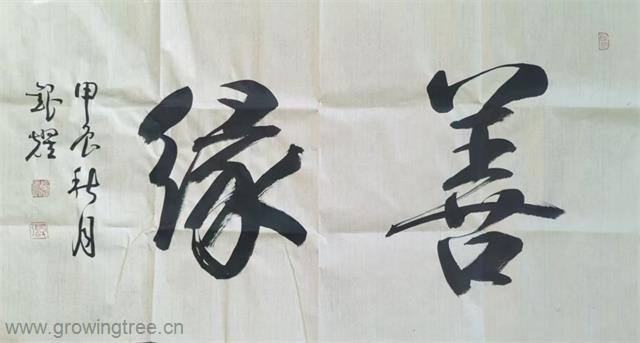 善缘
甲辰秋月
银耀
www.growingtree.cn